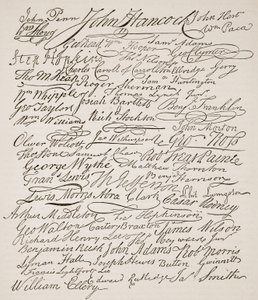 John Penn John Hancock John Hart
Wm Hooper Wm Paca
Geo Read Saml Adams
Step Hopkins Geo Clymer
Charles Carroll of Carrollton Elbridge Gerry
Tho M:Kean Roger Sherman Sam Huntington
Wm Whipple Thomas Lynch Junr
Geo Taylor Josiah Bartlett Benj Franklin
Wm Williams Richd Stockton
John Morton
Oliver Wolcott Jno Witherspoon Geo Ross
Thos Stone Samuel Chase Robt Treat Paine
George Wythe Matthew Thornton
Fran Lewis Th Jefferson Benj Harrison
Lewis Morris Abra Clark Phil Livingston
Caesar Rodney
Arthur Middleton Fras Hopkinson
Geo Walton Carter Braxton James Wilson
Richard Henry Lee Tho Heyward Junr
Benjamin Rush John Adams Robt Morris
Lyman Hall Joseph Hewes Button Gwinnett
Francis Lightfoot Lee
William Ellery Edward Rutledge Jas Smith